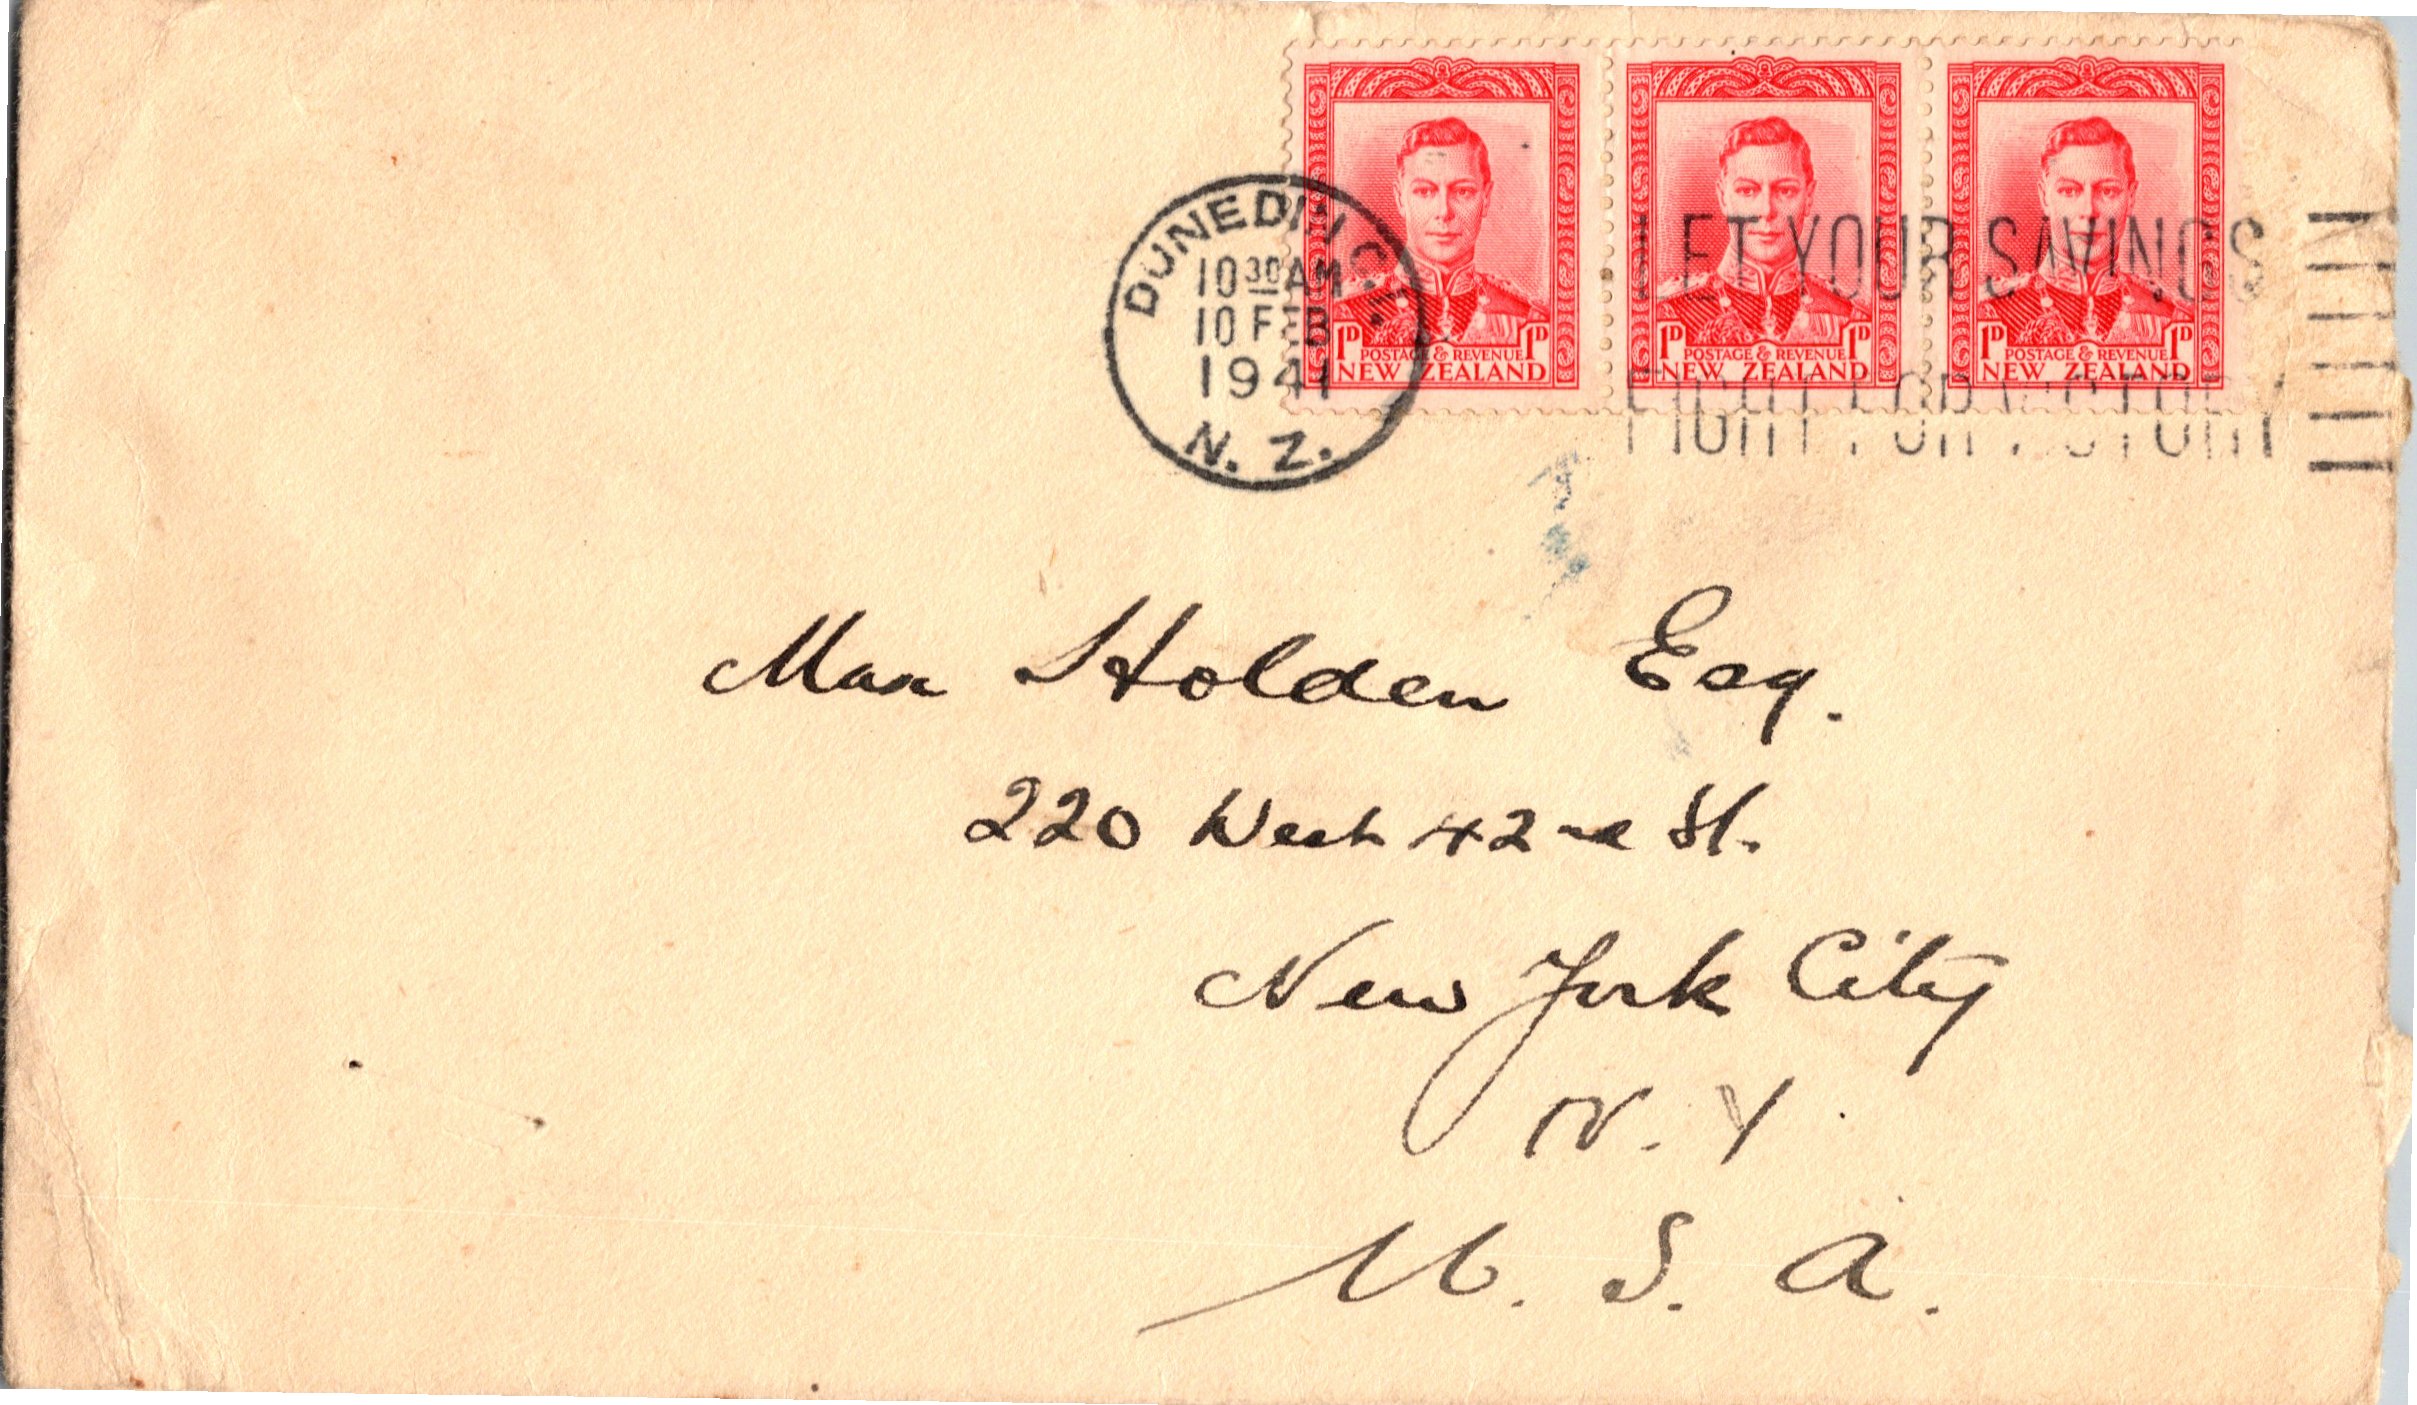 DUNEDIN C.1.
10 30 AM
10 FEB
1941
N. Z.
LET YOUR SAVINGS
FIGHT FOR VICTORY
1D POSTAGE & REVENUE 1D
NEW ZEALAND
1D POSTAGE & REVENUE 1D
NEW ZEALAND
1D POSTAGE & REVENUE 1D
NEW ZEALAND
Max Holden Esq.
220 West 42nd St.
New York City
N. Y.
U. S. A.